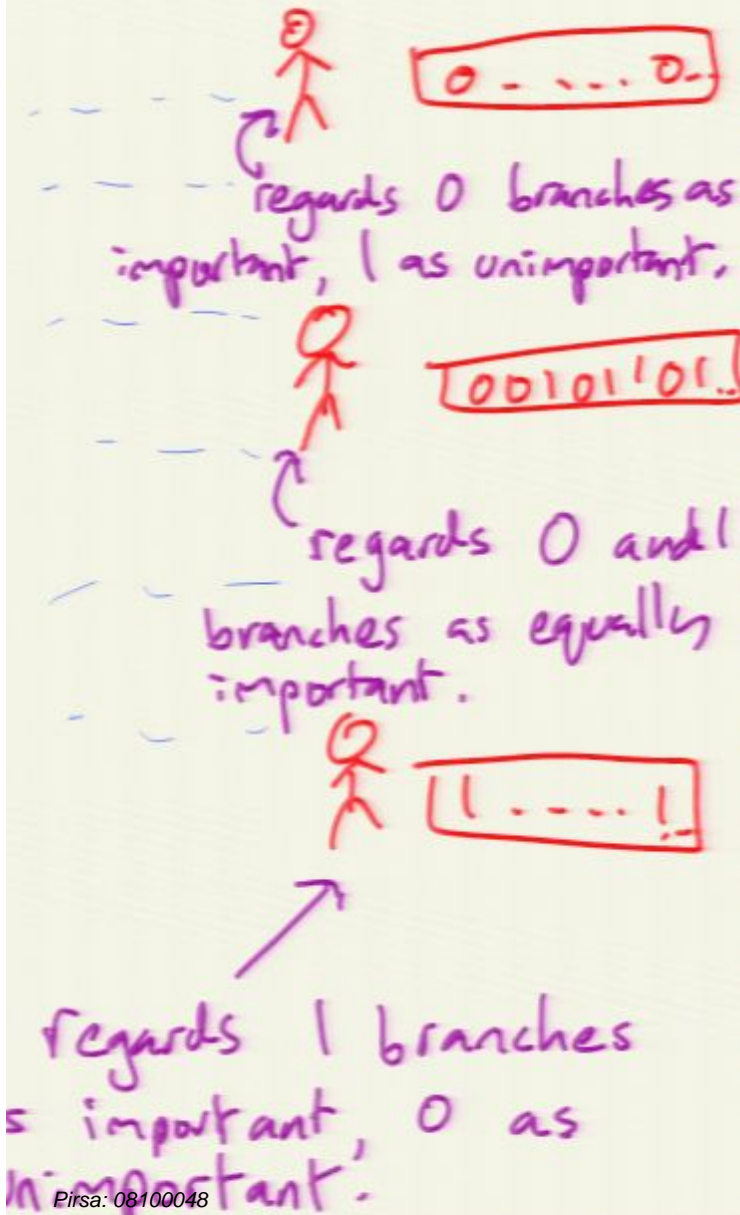 0 - - ... 0..
regards 0 branches as
important, 1 as unimportant.
00101101..
regards 0 and 1
branches as equally
important.
11 . - - . 1..
regards 1 branches
s important, 0 as
nimportant.
Pirsa: 08100048